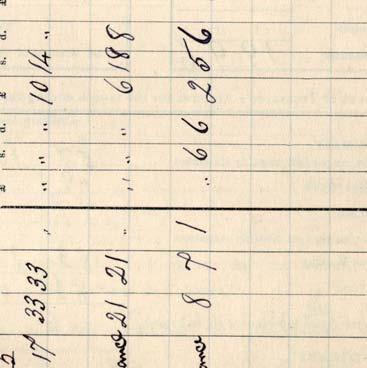 £ s. d. £ s. d. £
17 33 33 " " " " 10 14 "
ance 21 21 " " " " 6 18 8
ance 8 7 1 " 6 6 2 5 6